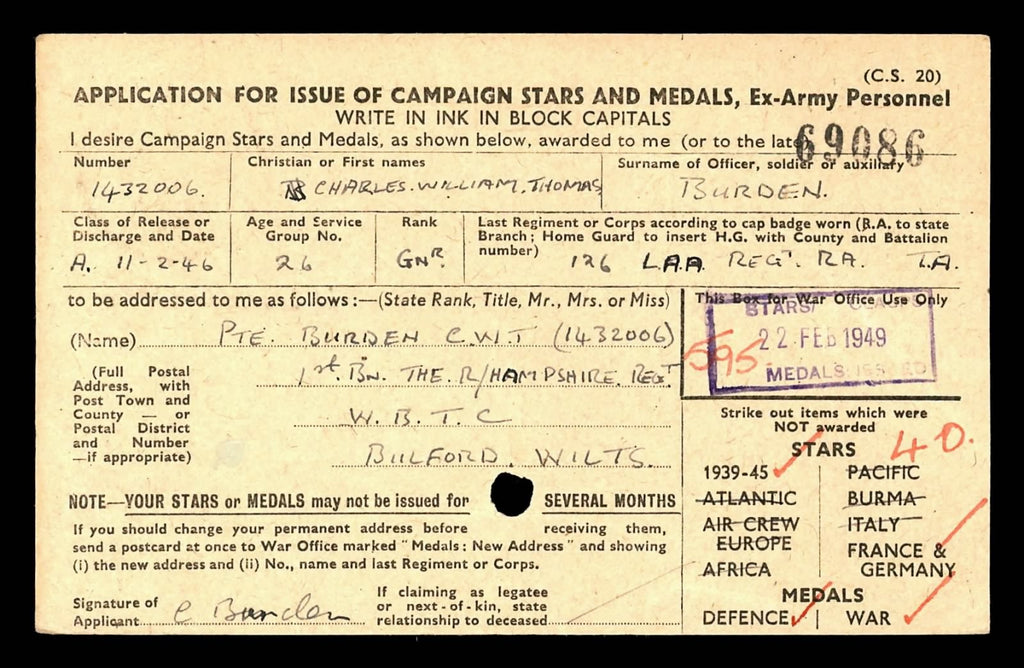 (C.S. 20)
APPLICATION FOR ISSUE OF CAMPAIGN STARS AND MEDALS, Ex-Army Personnel
WRITE IN INK IN BLOCK CAPITALS
I desire Campaign Stars and Medals, as shown below, awarded to me (or to the late
69086
Number
1432006.
Christian or First names
CHARLES.WILLIAM.THOMAS
Surname of Officer, soldier or auxiliary
BURDEN.
Class of Release or Discharge and Date
A. 11-2-46
Age and Service Group No.
26
Rank
GNR.
Last Regiment or Corps according to cap badge worn (R.A. to state
Branch; Home Guard to insert H.G. with County and Battalion
number)
126 L.A.A REGT. RA. T.A.
to be addressed to me as follows:—(State Rank, Title, Mr., Mrs. or Miss)
(Name) PTE. BURDEN C.W.T (1432006)
(Full Postal
Address, with
Post Town and
County — or
Postal District
and Number
—if appropriate)
1st. BN. THE. R/HAMPSHIRE. REGT
W. B. T. C
BULFORD. WILTS.
This Box for War Office Use Only
STARS/
22 FEB 1949
MEDALS ISSUED
595
NOTE—YOUR STARS or MEDALS may not be issued for SEVERAL MONTHS
If you should change your permanent address before receiving them,
send a postcard at once to War Office marked "Medals: New Address" and showing
(i) the new address and (ii) No., name and last Regiment or Corps.
Signature of
Applicant C Burden
If claiming as legatee
or next-of-kin, state
relationship to deceased
Strike out items which were
NOT awarded
40.
STARS
1939-45
ATLANTIC
AIR CREW
EUROPE
AFRICA
PACIFIC
BURMA
ITALY
FRANCE &
GERMANY
MEDALS
DEFENCE | WAR